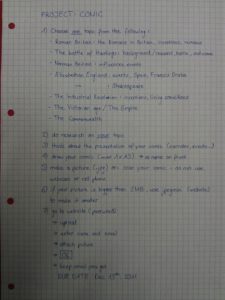 PROJECT: COMIC
1) Choose one topic from the following:
- Roman Britain: the Romans in Britain, inventions, remains
- The battle of Hastings: background / reasons, battle, outcome
- Norman Britain: influences, events
- Elizabethan England: events, Spain, Francis Drake
→ Shakespeare
- The Industrial Revolution: inventions, living conditions
- The Victorian age / The Empire
- The Commonwealth
2) do research on your topic
3) think about the presentation of your comic (
4) draw your comic (
5) make a picture (.jpg) or scan your comic - do not use
webcam or cell phone
6) if your picture is bigger than 2MB, use program (website)
to make it smaller
7) go to website (password)
→ upload
→ enter name and email
→ attach picture
→ OK
→ keep email you get
DUE DATE: Dec. 2011